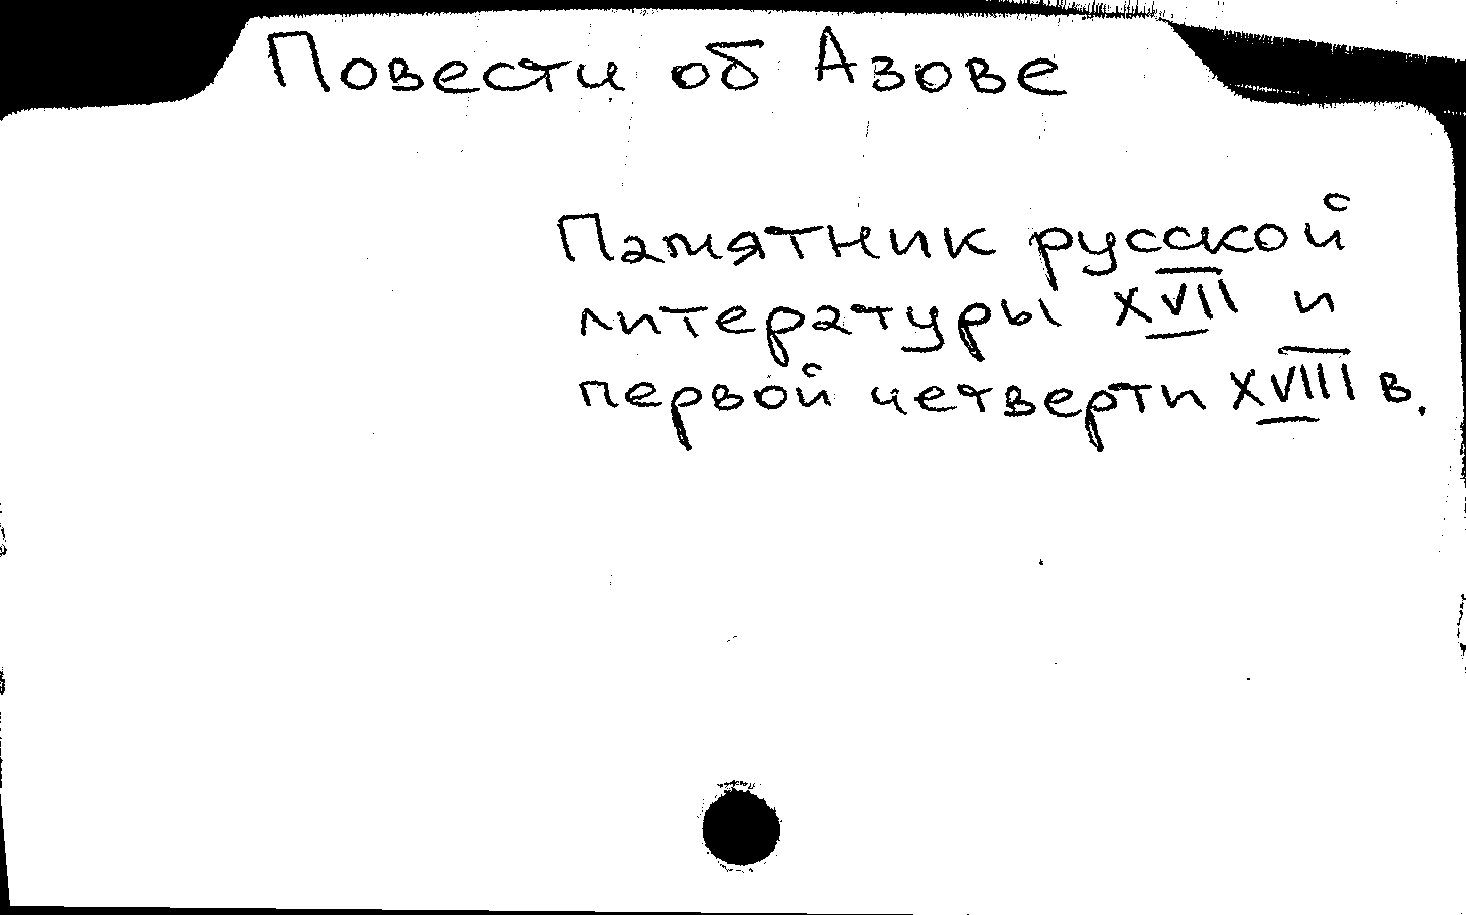 Повести об Азове
Памятник русской
литературы XVII и
первой четверти XVIII в.